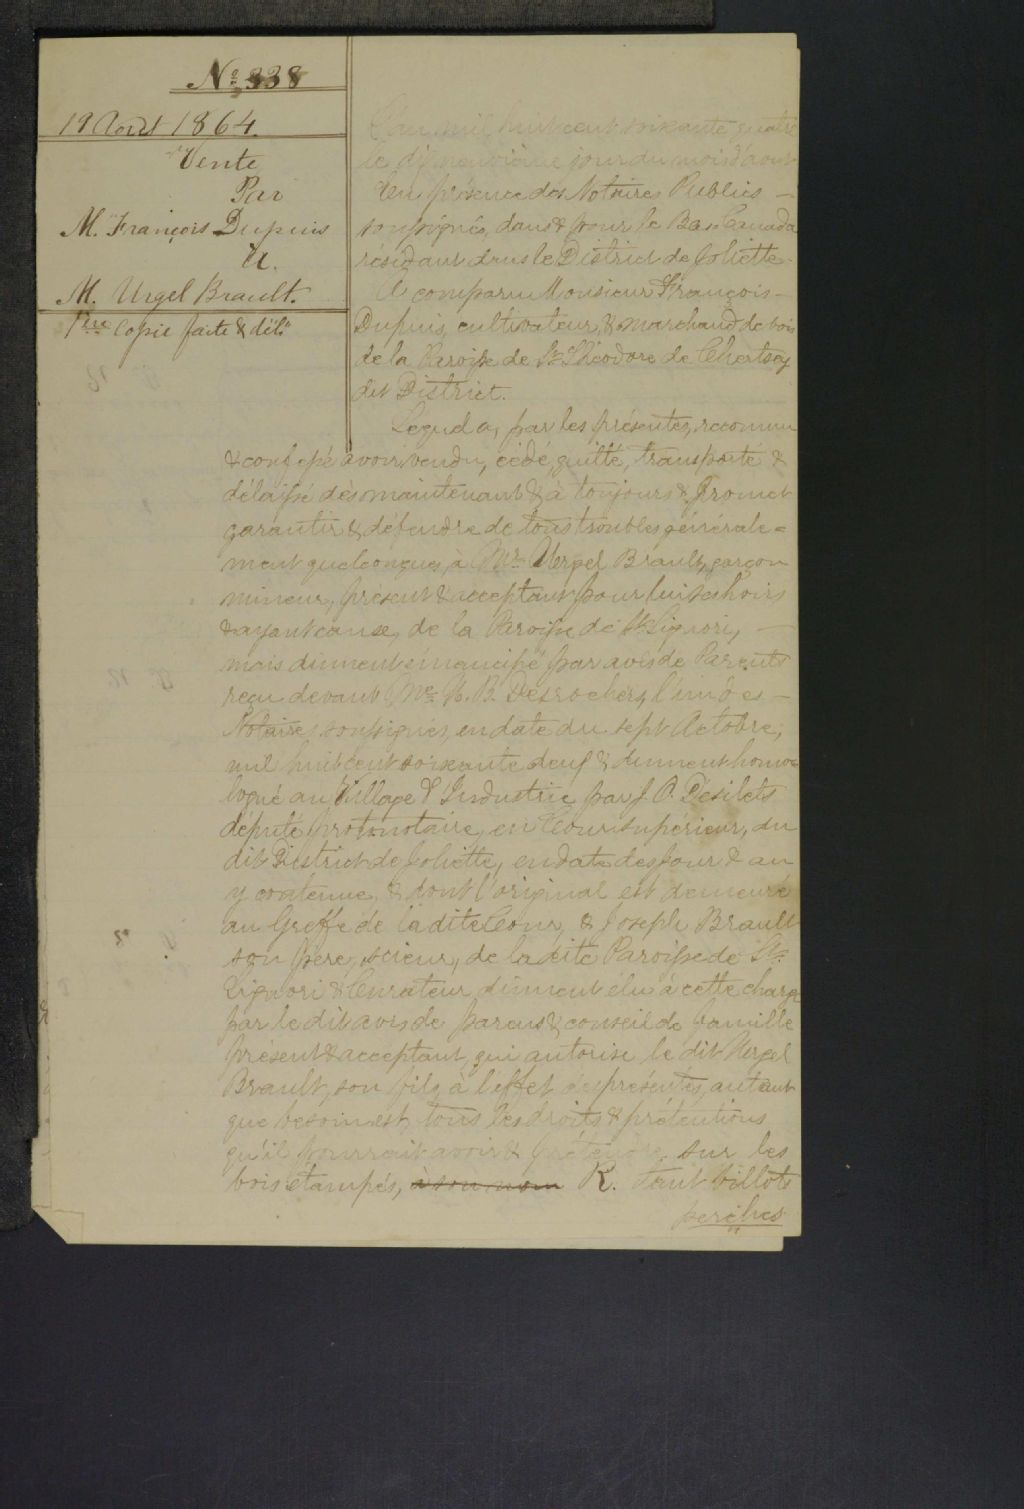 No. 338
19 Août 1864.
Vente
Par
M. François Dupuis
A.
M. Urgel Brault.
1ère Copie faite & dél.
L'an mil huit cent soixante quatre
le dix neuvième jour du mois d'aout
En présence des Notaires Publics —
soussignés, dans & pour le Bas Canada
résidant dans le District de Joliette.
A comparu Monsieur François —
Dupuis, cultivateur, & marchand de bois
de la Paroisse de St. Théodore de Chertsey
dit District.
Lequel a, par les présentes, reconnu
& confessé avoir vendu, cédé, quitté, transporté &
délaissé dès maintenant & à toujours & promet
garantir & défendre de tous troubles générale=
ment quelconques, à Mr. Urgel Brault, garçon
mineur, présent & acceptant pour lui ses hoirs
& ayant cause, de la Paroisse de St. Liguori, —
mais dûment émancipé par avis de Parents
reçu devant Me. B. Desrochers, l'un des —
Notaires soussignés, en date du sept Octobre,
mil huit cent soixante deux & dûment homo=
logué au Village d'Industrie par J. O. Désilets
député protonotaire, en Cour supérieur, du
dit District de Joliette, en date des jour & an
y contenue, & dont l'original est demeuré
au Greffe de la dite Cour, & Joseph Brault
son père, scieur, de la dite Paroisse de St.
Liguori & Curateur dûment élu à cette charge
par le dit avis de parens & conseil de famille
présent & acceptant, qui autorise le dit Urgel
Brault, son fils, à l'effet des présentes, autant
que besoin est, tous les droits & prétentions
qu'il pourrait avoir & prétendre, sur les
bois étampés, à son nom R. tant billots
perches